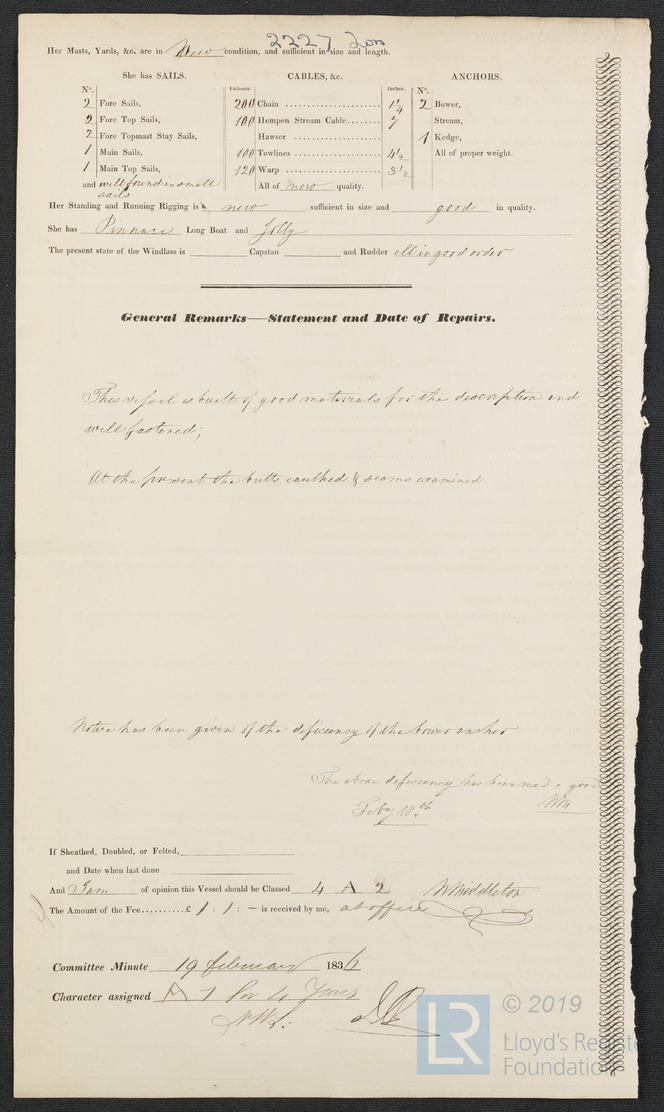 2227 Lon
Her Masts, Yards, &c. are in New condition, and sufficient in size and length.
She has SAILS. CABLES, &c. ANCHORS.
Nº. Fathoms. Inches. Nº.
2 Fore Sails, 200 Chain 1 1/4 2 Bower,
2 Fore Top Sails, 100 Hempen Stream Cable 7 Stream,
2 Fore Topmast Stay Sails, Hawser 1 Kedge,
1 Main Sails, 100 Towlines 4 1/2 All of proper weight.
1 Main Top Sails, 120 Warp 3 1/2
and well found in small sails All of new quality.
Her Standing and Running Rigging is new sufficient in size and good in quality.
She has Pinnace Long Boat and Jolly
The present state of the Windlass is Capstan and Rudder all in good order
General Remarks—Statement and Date of Repairs.
This vessel is built of good materials for the description and
well fastened;
At the present the butts caulked & seams examined
Notice has been given of the deficiency of the bower anchor
The above deficiency has been made good
Feby 18th WM
If Sheathed, Doubled, or Felted,
and Date when last done
And I am of opinion this Vessel should be Classed 4 A 2 W Middleton
The Amount of the Fee £ 1 : 1 : - is received by me, at office
Committee Minute 19 February 1836
Character assigned A 1 for 4 Years
© 2019
LR
Lloyd's Register
Foundation